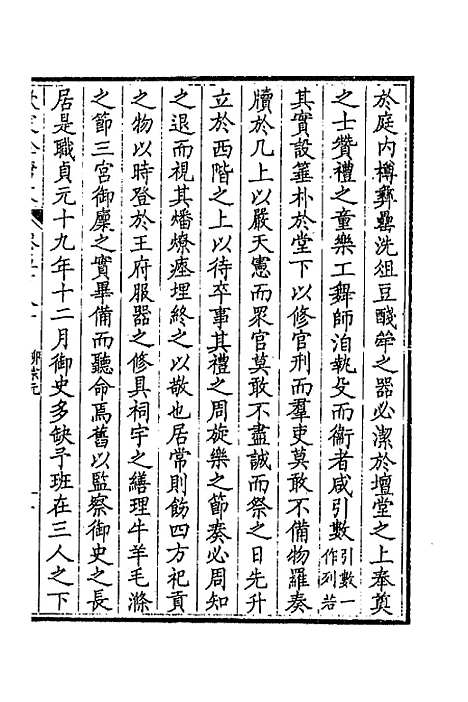 於庭內樽彝罍洗俎豆醆斝之器必潔於壇堂之上奉奠
之士贊禮之童樂工舞師洎執殳而衞者咸引數引數一作列若
其實設箠朴於堂下以修官刑而羣吏莫敢不備物羅奏
牘於几上以嚴天憲而眾官莫敢不盡誠而祭之日先升
立於西階之上以待卒事其禮之周旋樂之節奏必周知
之退而視其燔燎瘞埋終之以敬也居常則飭四方祀貢
之物以時登於王府服器之修具祠宇之繕理牛羊毛滌
之節三宮御廩之實畢備而聽命焉舊以監察御史之長
居是職貞元十九年十二月御史多缺予班在三人之下